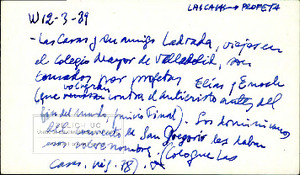 LAS CASAS — PROFETA
W 12-3-89
- Las Casas y su amigo Ladrada, viejos en
el Colegio Mayor de Valladolid, son
tomados por profetas Elías y Enoch
volverán
(que contra el anticristo antes del
fin del mundo, juicio final). Los dominicos
del convento de San Gregorio les daban
ese sobrenombre, (Cologne, Las
Casas, pág. 78).